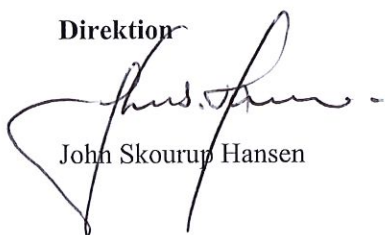 Direktion
John Skourup Hansen